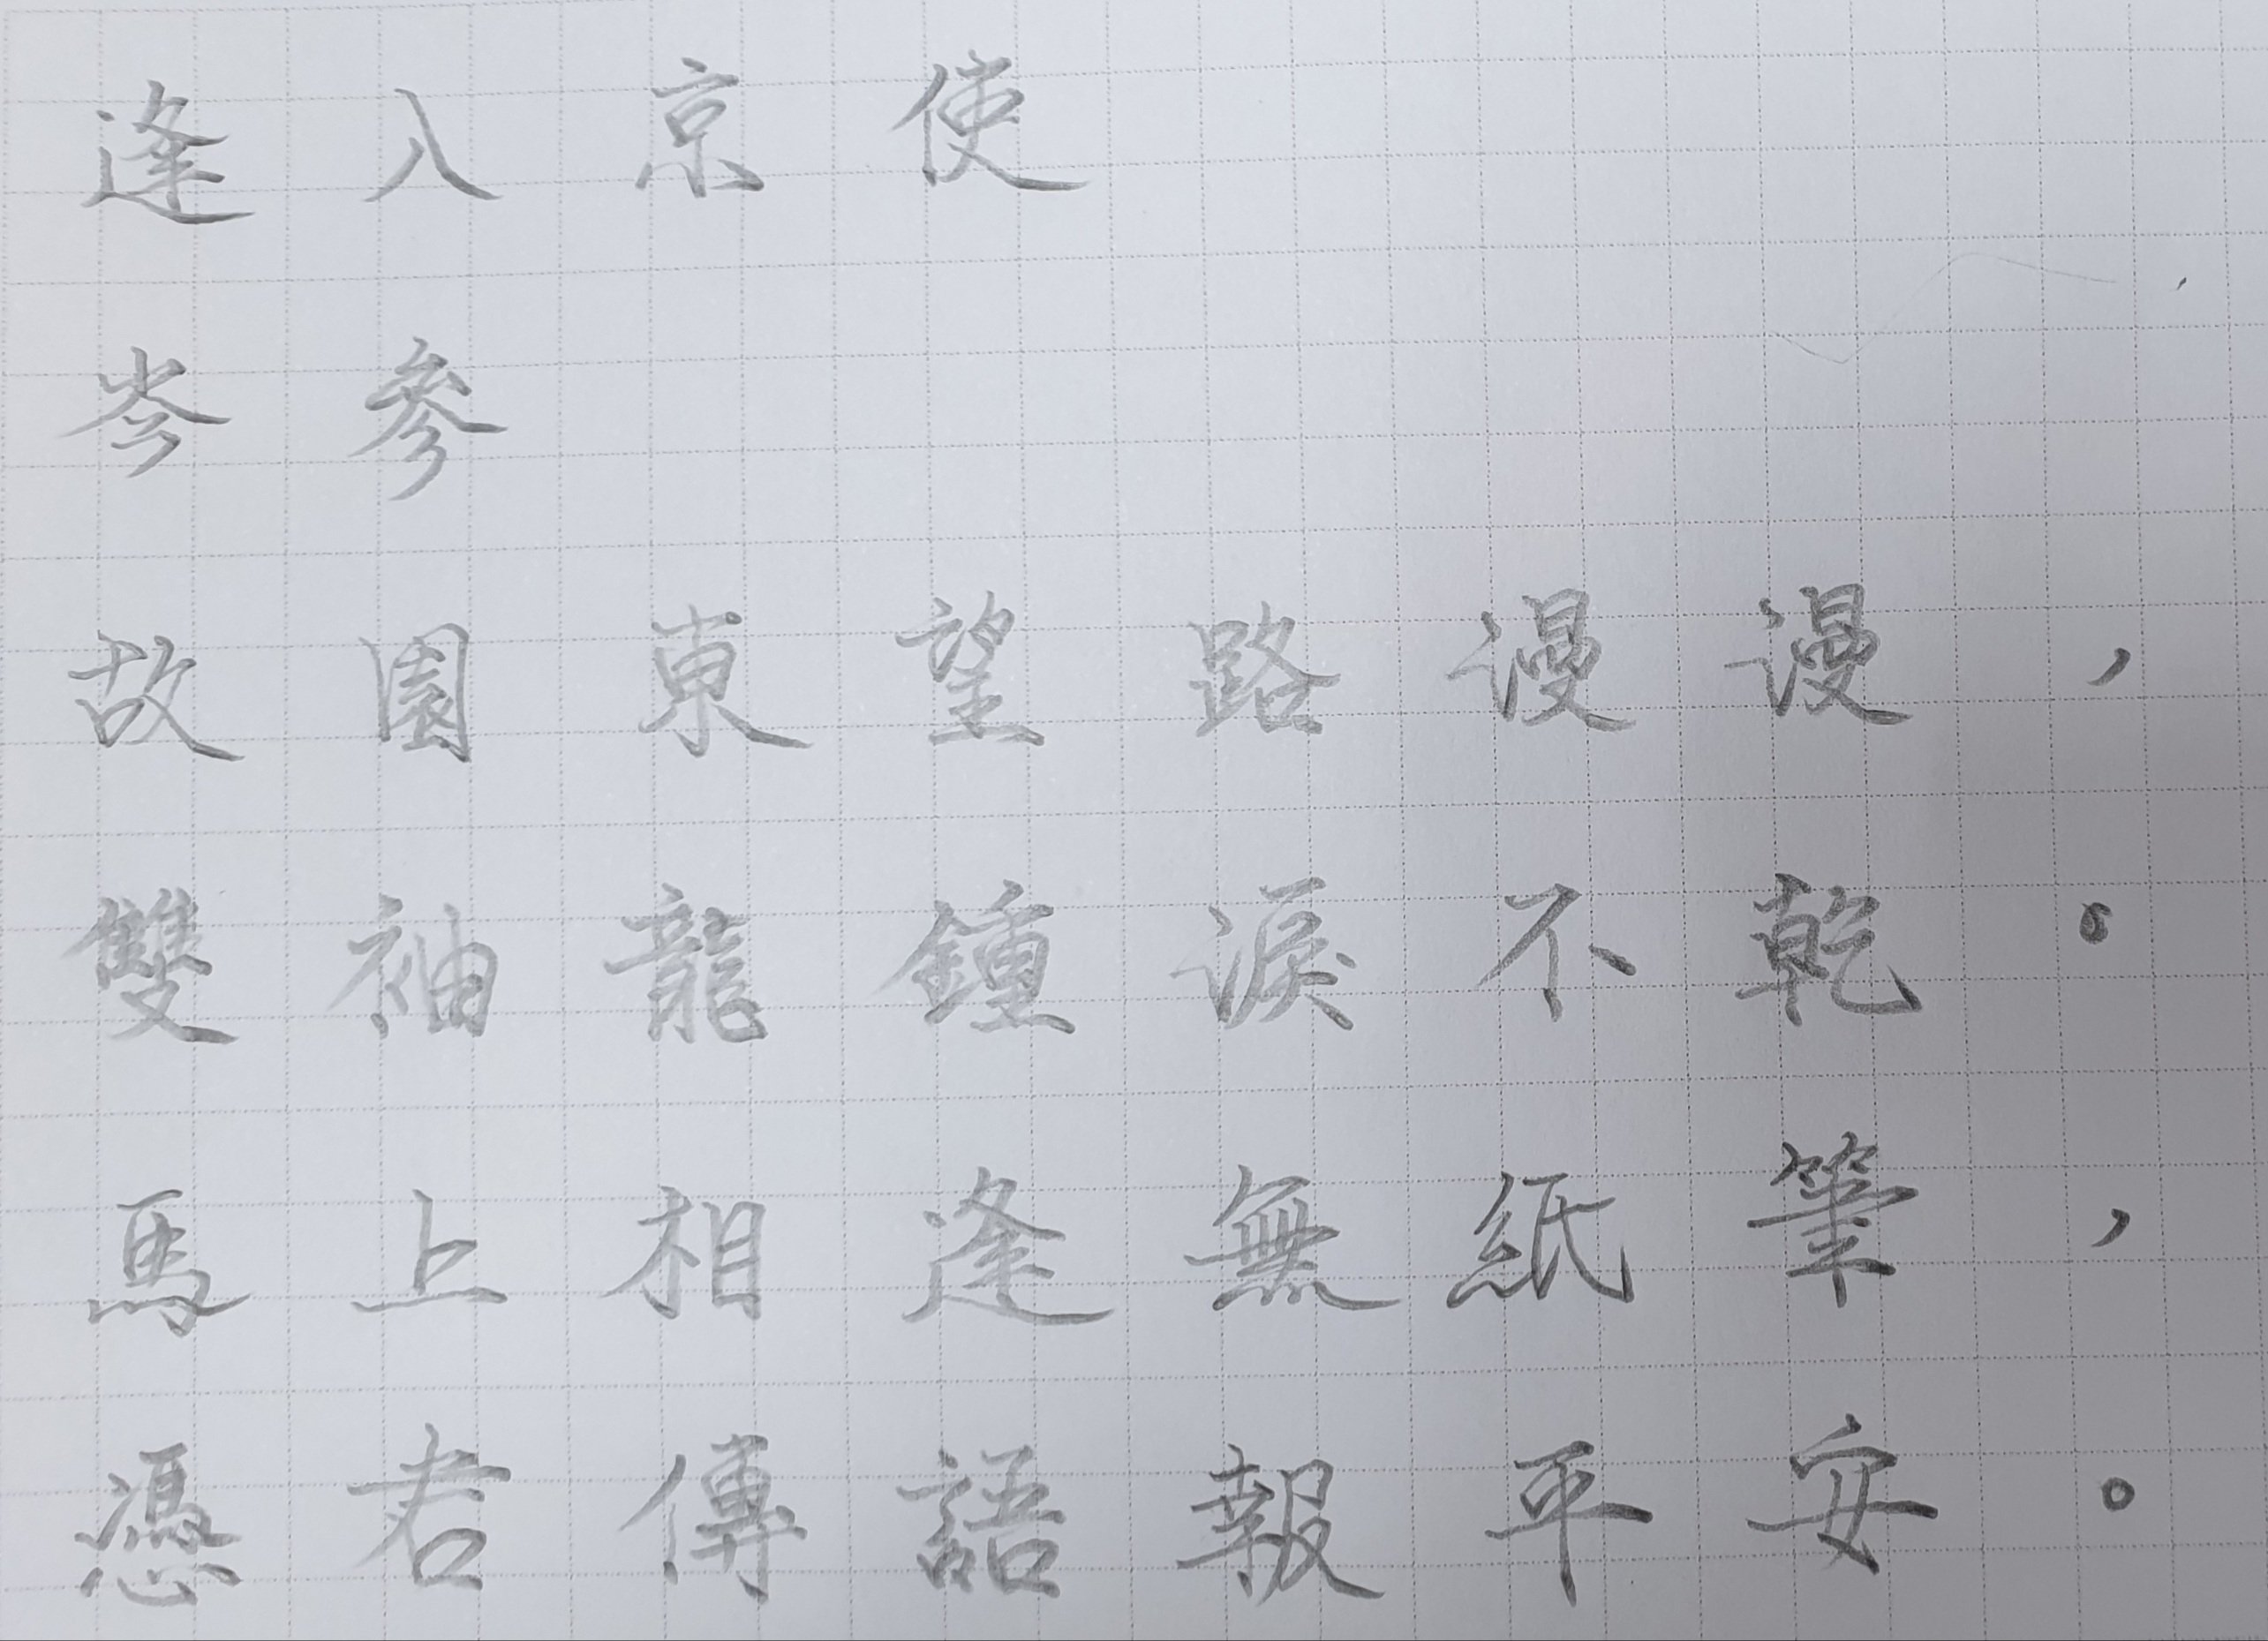 逢入京使
岑參
故園東望路漫漫，
雙袖龍鍾淚不乾。
馬上相逢無紙筆，
憑君傳語報平安。